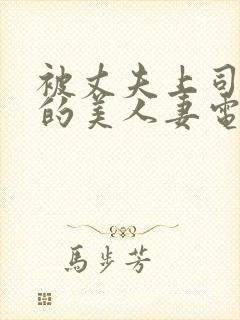 被丈夫上司
的美人妻電
馬步芳